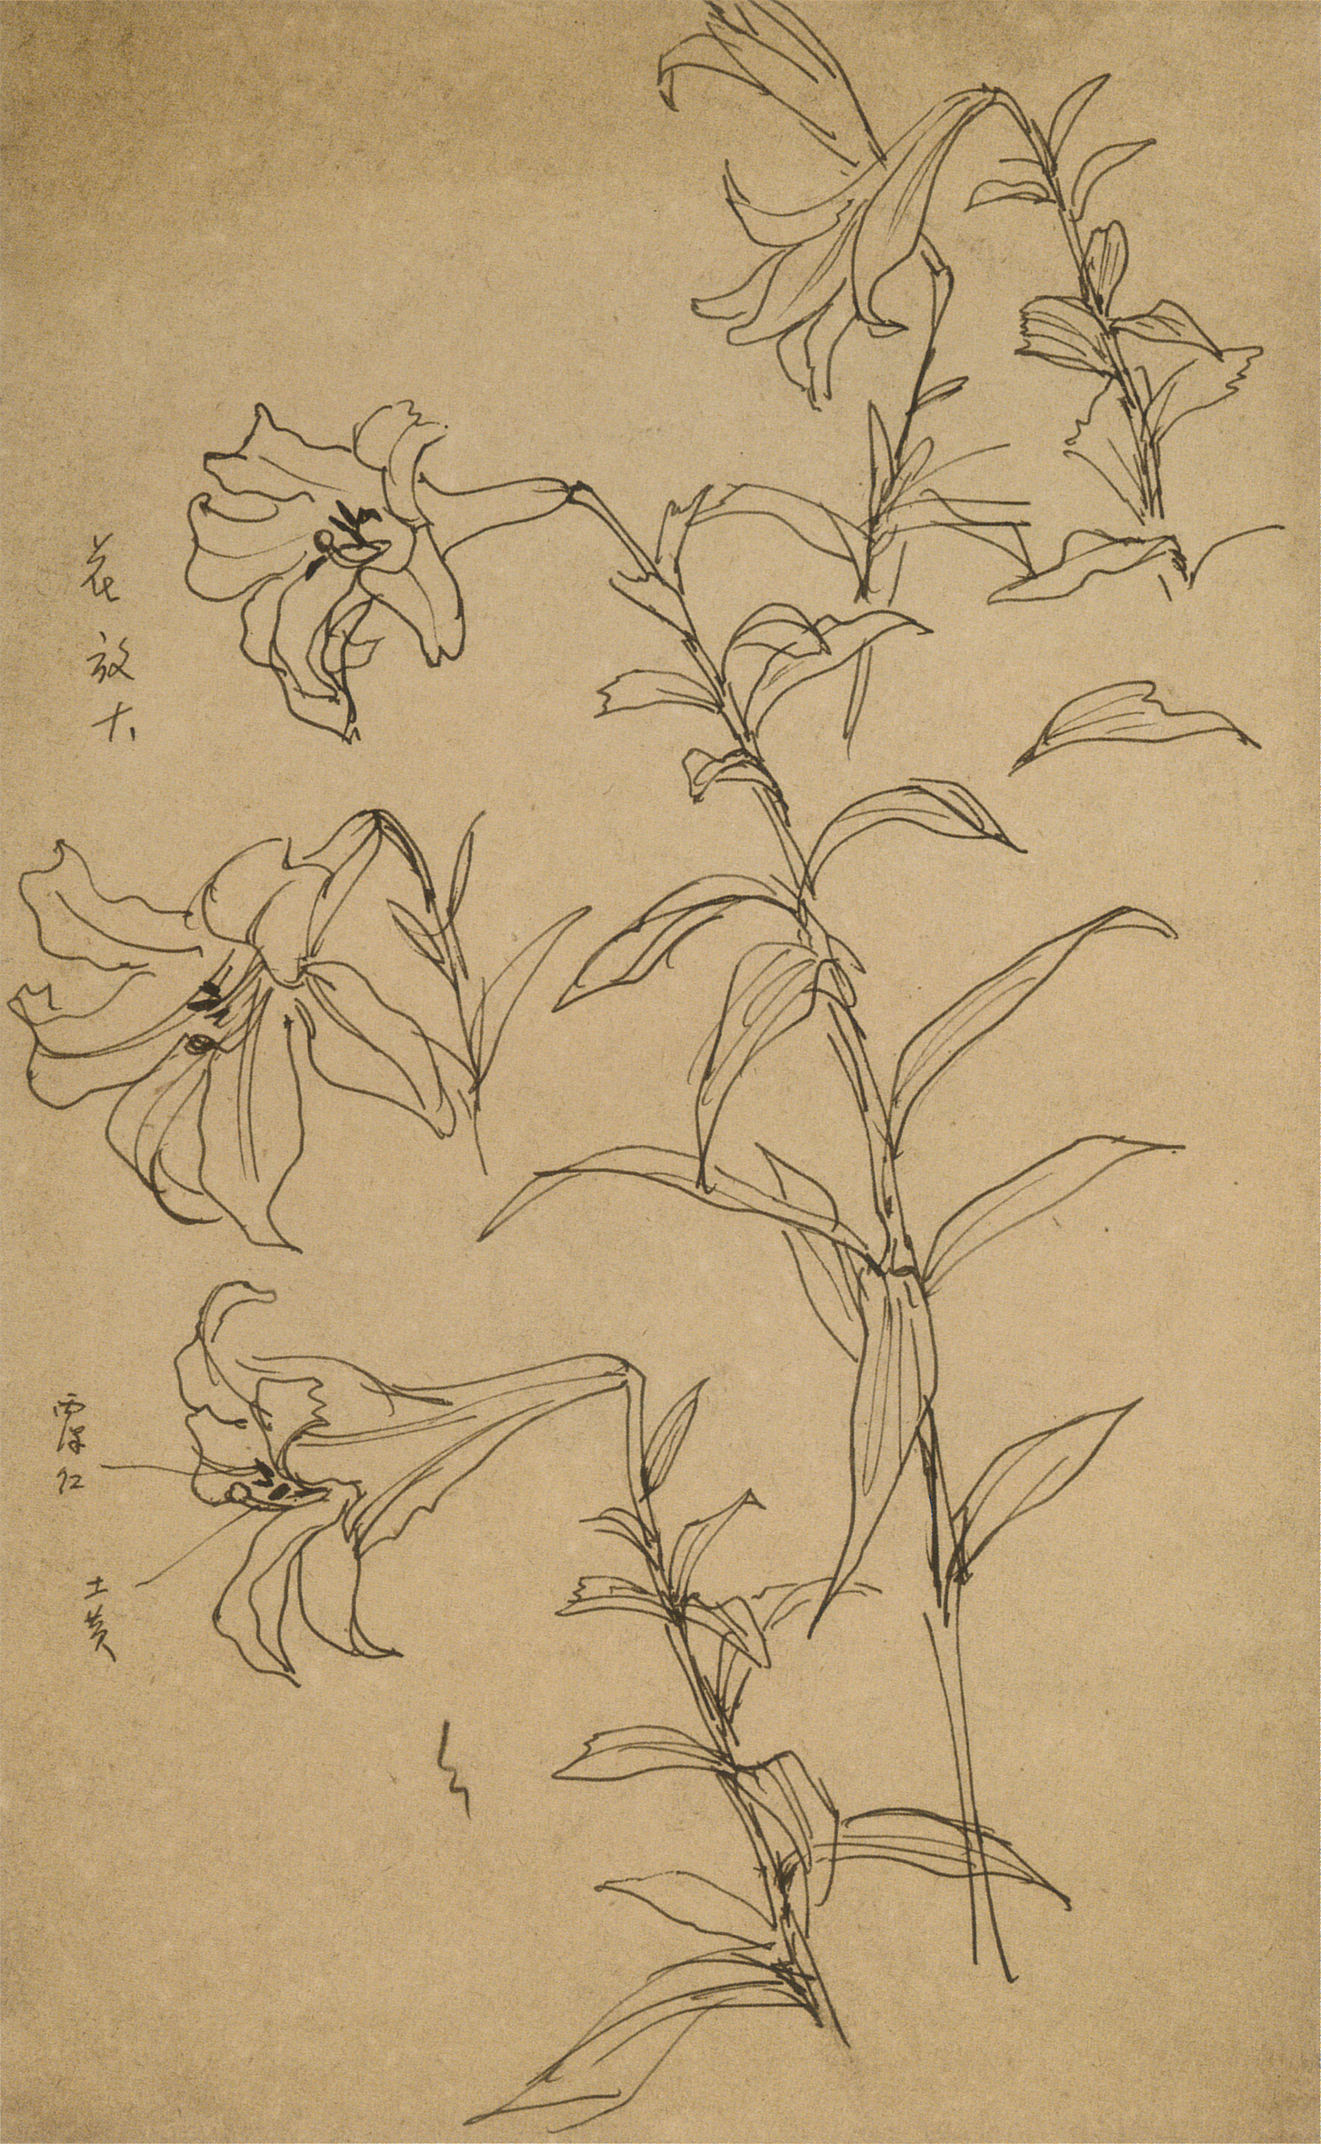 花放大
红
土黄